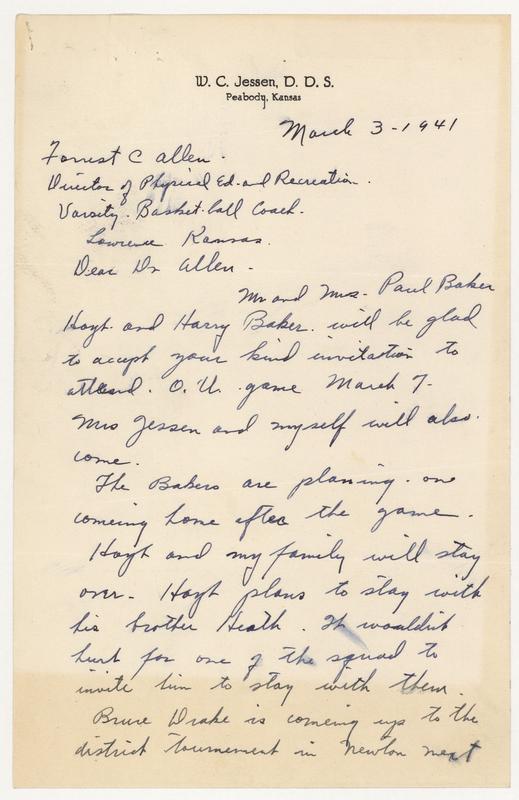 W. C. Jessen, D. D. S.
Peabody, Kansas
March 3-1941
Forrest C Allen.
Director of Physical Ed. and Recreation.
Varsity. Basket-ball Coach.
Lawrence Kansas.
Dear Dr Allen -
Mr and Mrs. Paul Baker
Hoyt. and Harry Baker. will be glad
to accept your kind invitastion to
attend. O. U. game March 7-
Mrs Jessen and myself will also.
come.
The Bakers are planing. one
comeing home after the game.
Hoyt and my family will stay
over- Hoyt plans to stay with
his brother Heath. It wouldn't
hurt for one of the squad to
invite him to stay with them.
Bruce Drake is comeing up to the
district tournement in Newton next